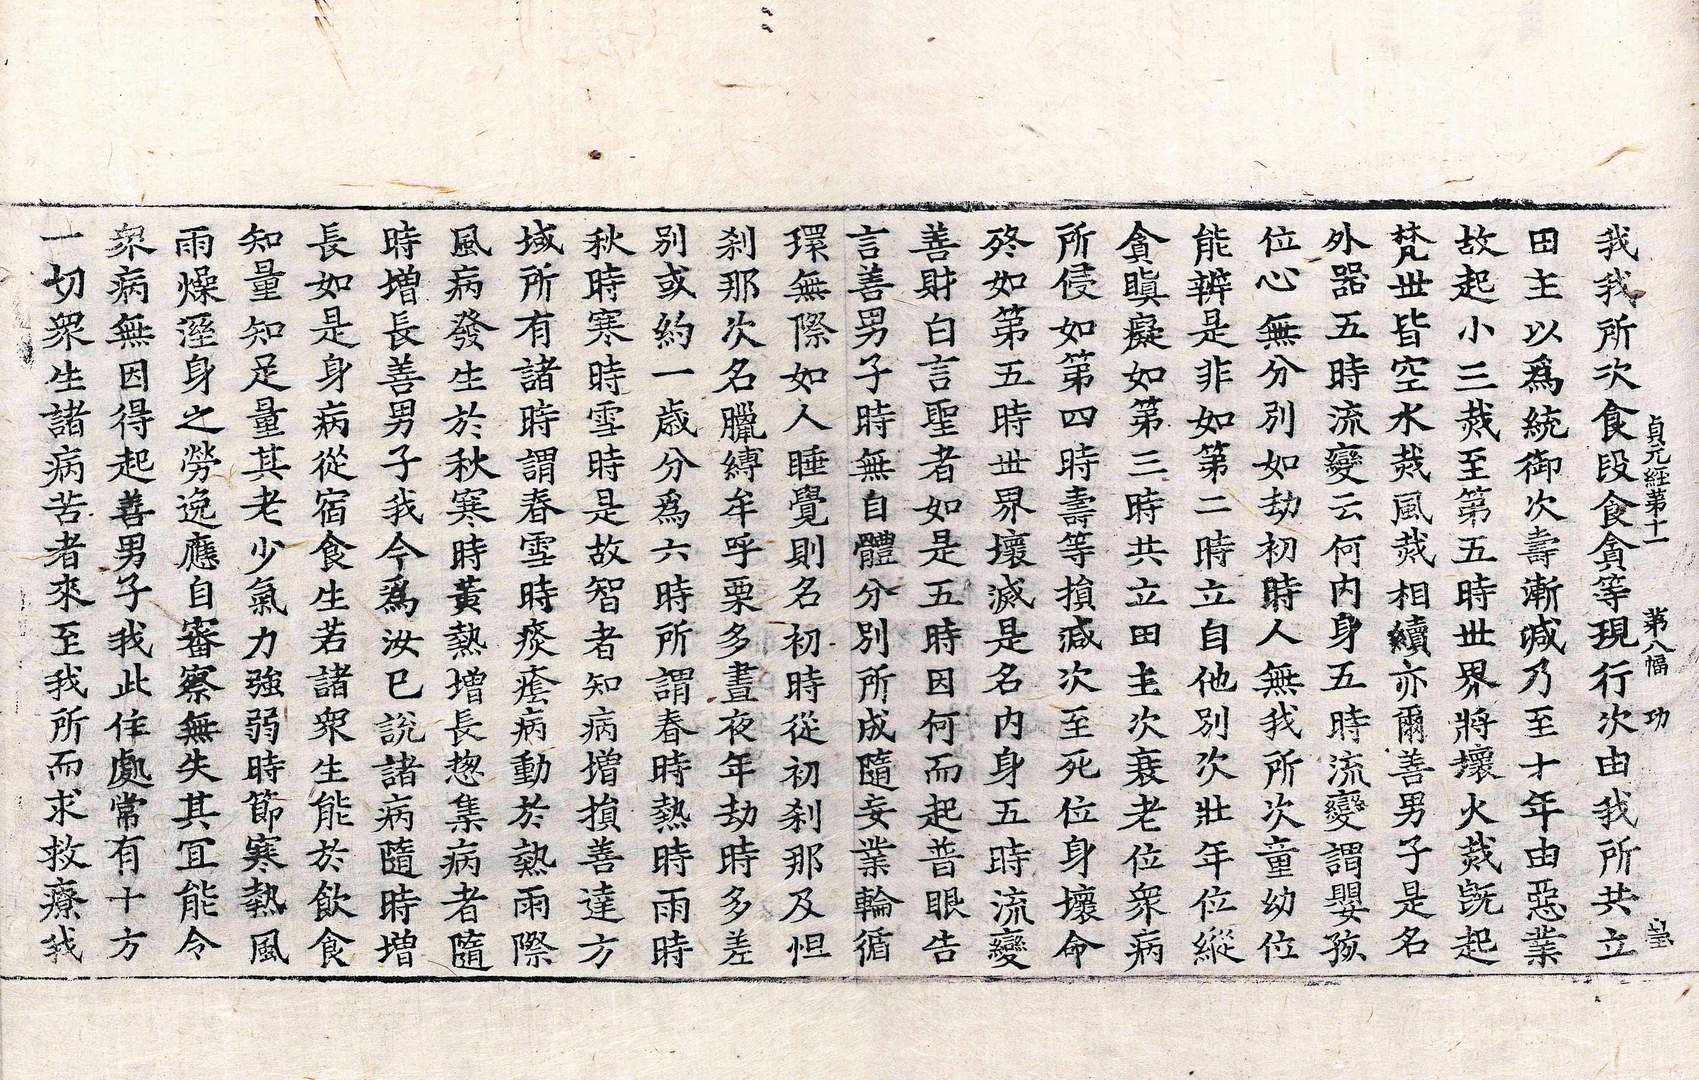 貞元經第十一　第八幅　功　皇
我我所次食段食貪等現行次由我所共立
田主以爲統御次壽漸減乃至十年由惡業
故起小三烖至第五時世界將壞火烖旣起
梵世皆空水烖風烖相續亦爾善男子是名
外器五時流變云何內身五時流變謂嬰孩
位心無分別如劫初時人無我所次童幼位
能辨是非如第二時立自他別次壯年位縱
貪瞋癡如第三時共立田主次衰老位衆病
所侵如第四時壽等損減次至死位身壞命
終如第五時世界壞滅是名內身五時流變
善財白言聖者如是五時因何而起普眼告
言善男子時無自體分別所成隨妄業輪循
環無際如人睡覺則名初時從初刹那及怛
刹那次名臘縛牟呼栗多晝夜年劫時多差
別或約一歲分爲六時所謂春時熱時雨時
秋時寒時雪時是故智者知病增損善達方
域所有諸時謂春雪時痰癊病動於熱雨際
風病發生於秋寒時黃熱增長揔集病者隨
時增長善男子我今爲汝已說諸病隨時增
長如是身病從宿食生若諸衆生能於飲食
知量知足量其老少氣力強弱時節寒熱風
雨燥溼身之勞逸應自審察無失其冝能令
衆病無因得起善男子我此住處常有十方
一切衆生諸病苦者來至我所而求救療我